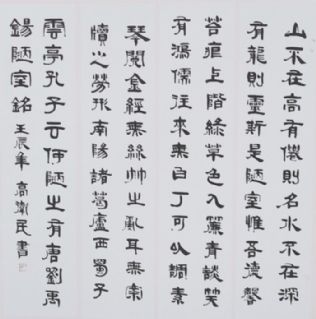 山不在高有僊則名水不在深
有龍則靈斯是陋室惟吾德馨
苔痕上階綠草色入簾青談笑
有鴻儒往來無白丁可以調素
琴閱金經無絲竹之亂耳無案
牘之勞形南陽諸葛廬西蜀子
雲亭孔子云何陋之有唐劉禹
錫陋室銘壬辰年高衛民書